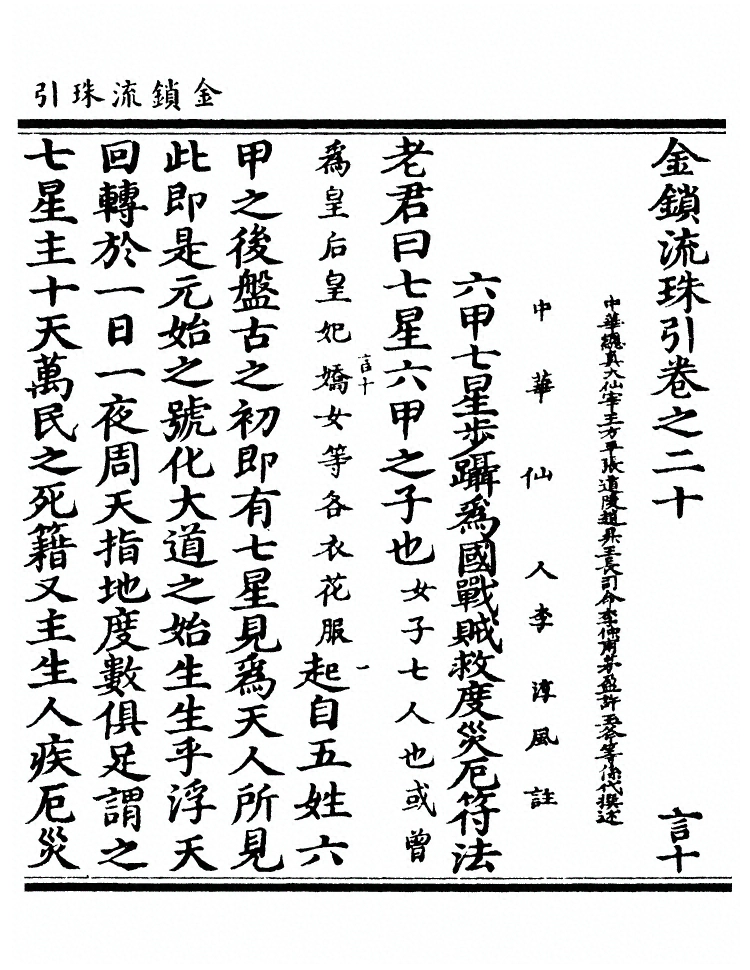 金鎖流珠引
金鎖流珠引卷之二十
言十
中華總真大仙宰王方平張道陵趙昇王長司命李仲甫茅盈許玉斧等係代撰述
中華仙人李淳風註
六甲七星步躡爲國戰賊救度災厄符法
老君曰七星六甲之子也女子七人也或曾
爲皇后皇妃嬌女等各衣花服起自五姓六
言十
一
甲之後盤古之初即有七星見爲天人所見
此即是元始之號化大道之始生生乎浮天
回轉於一日一夜周天指地度數俱足謂之
七星主十天萬民之死籍又主生人疾厄災